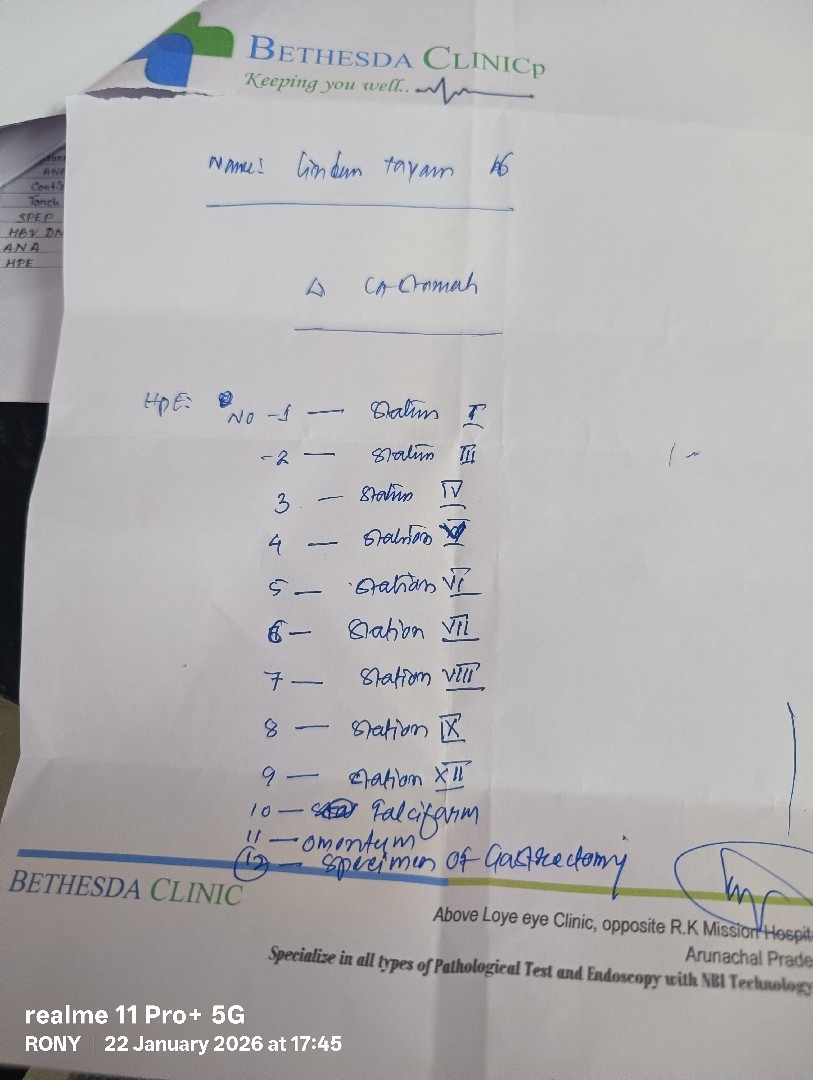 BETHESDA CLINICp
Keeping you well..
Conti
Tonch
SPEP
HBV DN
ANA
HPE
Name: tayam
Δ CA-Stomach
HPE: No -1 — Station I
-2 — Station III
3 — Station IV
4 — Station
5 — Station VI
6 — Station VII
7 — Station VIII
8 — Station IX
9 — Station XII
10 — Falcifarm
11 — omentum
12 — Specimen of Gastrectomy
BETHESDA CLINIC
Above Loye eye Clinic, opposite R.K Mission Hospit
Arunachal Prade
Specialize in all types of Pathological Test and Endoscopy with NBI Technology
realme 11 Pro+ 5G
RONY 22 January 2026 at 17:45